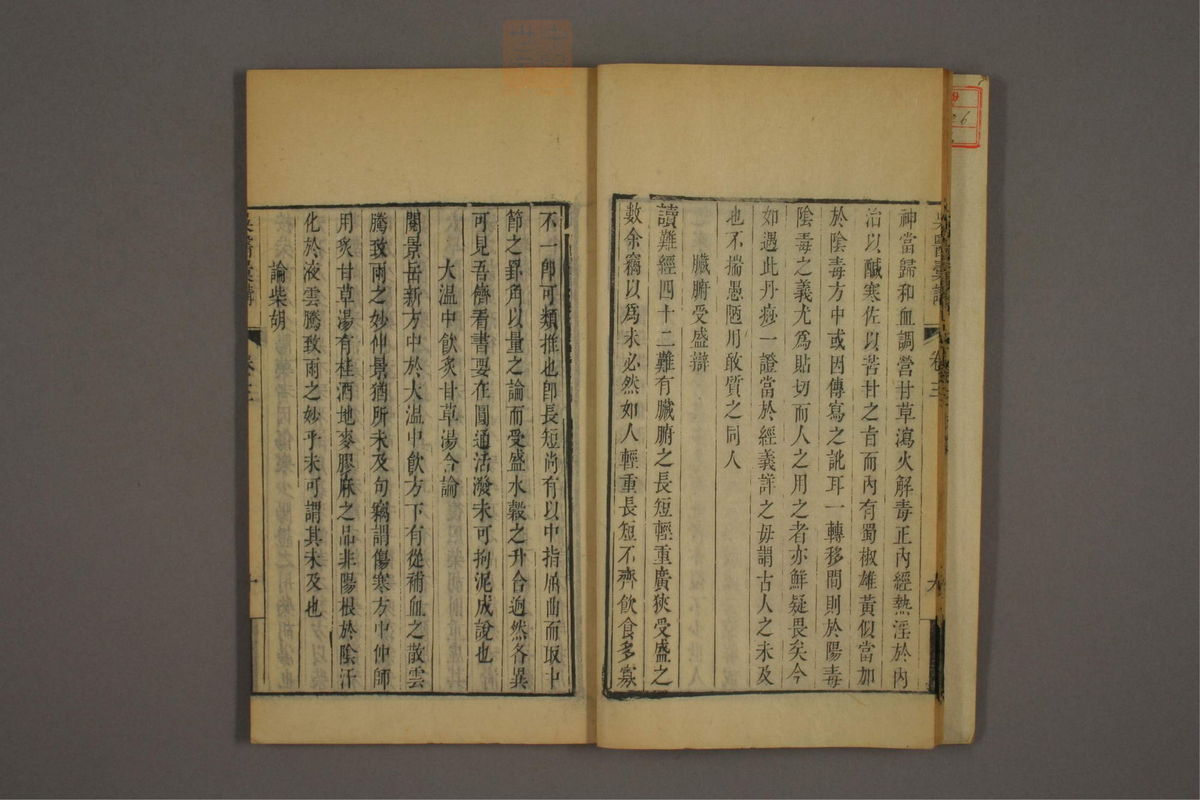 神當歸和血調營甘草瀉火解毒正內經熱淫於內
治以醎寒佐以苦甘之㫖而內有蜀椒雄黃似當加
於陰毒方中或因傳寫之訛耳一轉移間則於陽毒
陰毒之義尤爲貼切而人之用之者亦鮮疑畏矣今
如遇此丹痧一證當於經義詳之毋謂古人之未及
也不揣愚陋用敢質之同人
臟腑受盛辯
讀難經四十二難有臟腑之長短輕重廣狹受盛之
數余竊以爲未必然如人輕重長短不齊飲食多寡
不一卽可類推也卽長短尚有以中指屈曲而取中
節之爲角以量之論而受盛水穀之升合迥然各異
可見吾儕看書要在圓通活潑未可拘泥成說也
大溫中飲炙甘草湯合論
閱景岳新方中於大溫中飲方下有從補血之散雲
騰致雨之妙仲景猶所未及句竊謂傷寒方中仲師
用炙甘草湯有桂酒地麥膠麻之品非陽根於陰汗
化於液雲騰致雨之妙乎未可謂其未及也
論柴胡
吳醫彙講
卷三
十